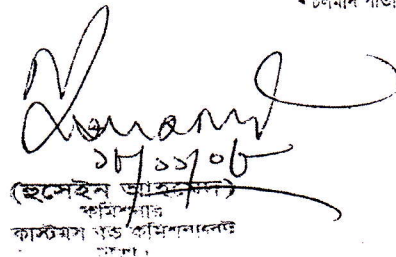 চলমান
১৮/১১/০৮
(হুসেইন আহমেদ)
কমিশনার
কাস্টমস বন্ড কমিশনারেট
ঢাকা।